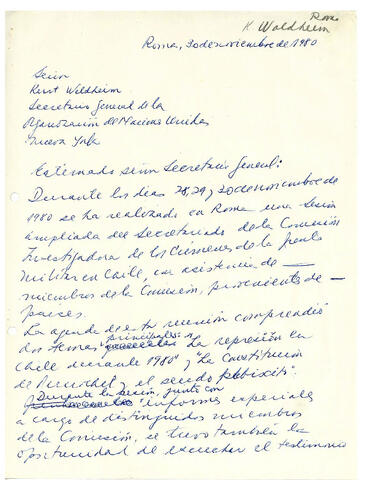 Roma
K. Waldheim
Roma, 30 de noviembre de 1980
Señor
Kurt Waldheim
Secretario General de la
Organización de Naciones Unidas
Nueva York
Estimado señor Secretario General:
Durante los días 28, 29 y 30 de noviembre de
1980 se ha realizado en Roma una sesión
ampliada del Secretariado de la Comisión
Investigadora de los Crímenes de la Junta
Militar en Chile, con asistencia de —
miembros de la Comisión, provenientes de —
países.
La agenda de esta reunión comprendió
dos temas principales: "La represión en
Chile durante 1980" y "La Constitución
de Pinochet y el seudo plebiscito".
Durante la sesión, junto con
informes especiales
a cargo de distinguidos miembros
de la Comisión, se tuvo también la
oportunidad de escuchar el testimonio